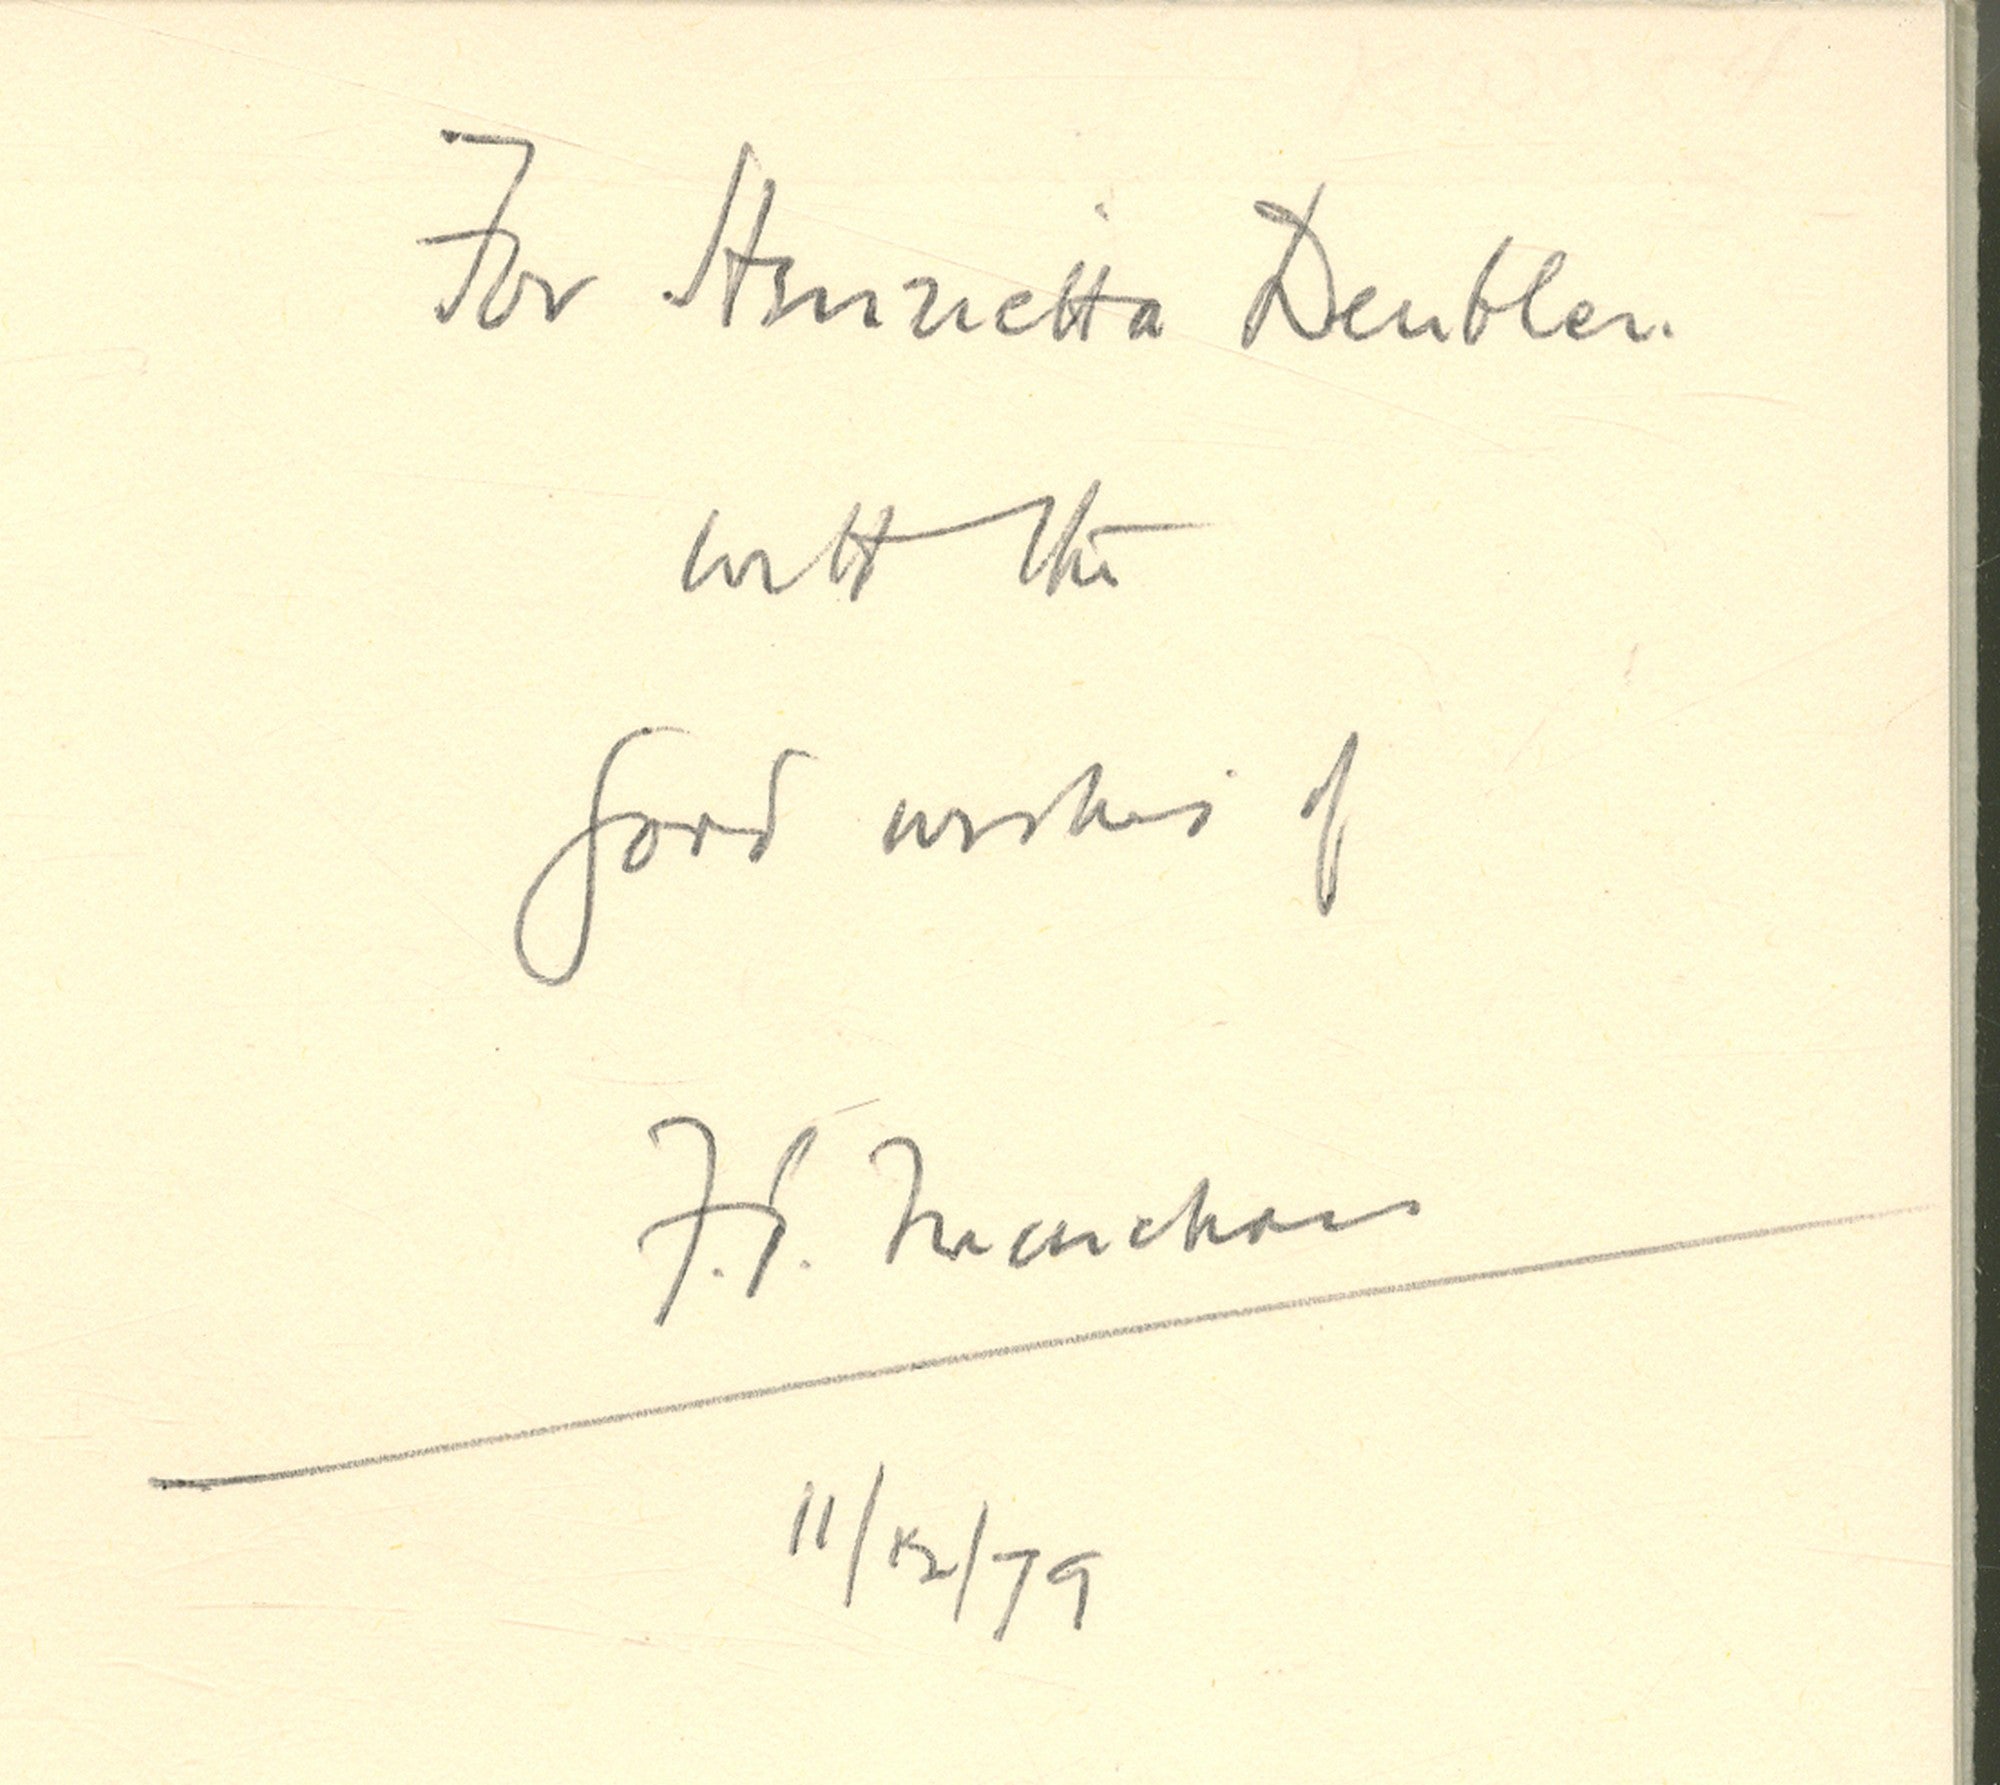 For Henrietta Deubler.
with the
good wishes of
11/12/79